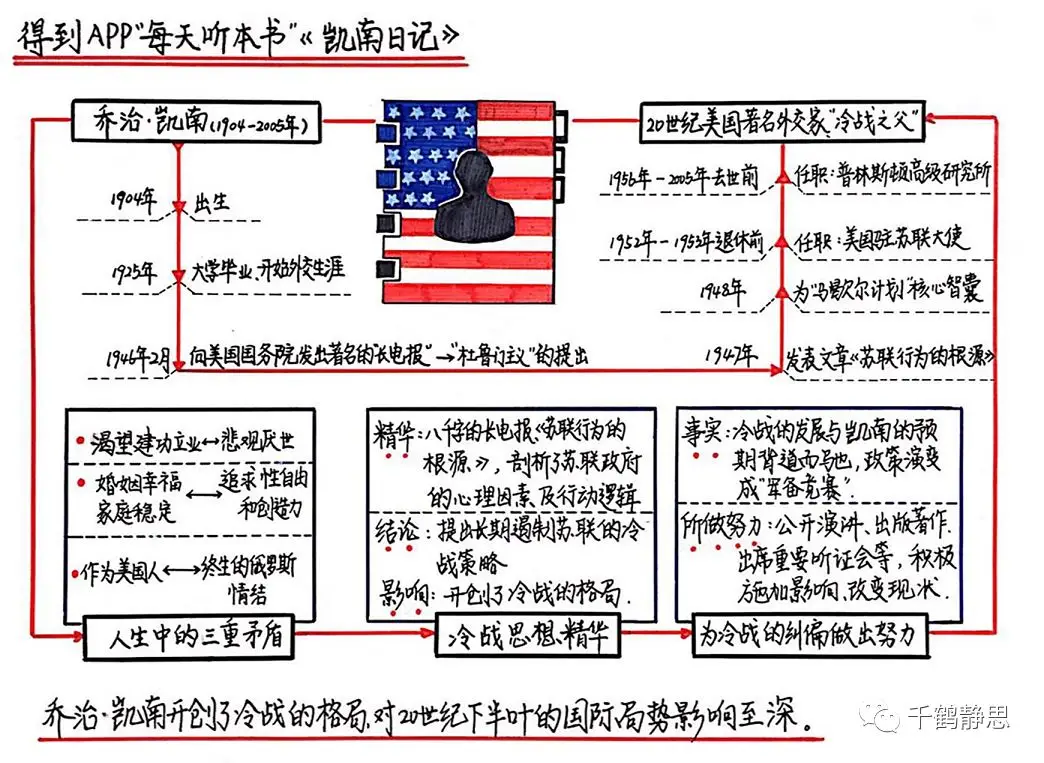 得到APP"每天听本书"《凯南日记》
乔治·凯南(1904-2005年)
1904年 出生
1925年 大学毕业、开始外交生涯
1946年2月 向美国国务院发出著名的"长电报"→"杜鲁门主义"的提出
20世纪美国著名外交家、"冷战之父"
1956年-2005年去世前 任职：普林斯顿高级研究所
1952年-1953年退休前 任职：美国驻苏联大使
1948年 为"马歇尔计划"核心智囊
1947年 发表文章《苏联行为的根源》
渴望建功立业↔悲观厌世
婚姻幸福
家庭稳定
↔
追求性自由
和创造力
作为美国人↔终生的俄罗斯
情结
人生中的三重矛盾
精华：八千字的长电报、《苏联行为的
根源》，剖析了苏联政府
的心理因素及行动逻辑
结论：提出长期遏制苏联的冷
战策略
影响：开创了冷战的格局.
冷战思想精华
事实：冷战的发展与凯南的预
期背道而驰，政策演变
成"军备竞赛".
所做努力：公开演讲、出版著作、
出席重要听证会等，积极
施加影响、改变现状.
为冷战的纠偏做出努力
乔治·凯南开创了冷战的格局，对20世纪下半叶的国际局势影响至深。
千鹤静思